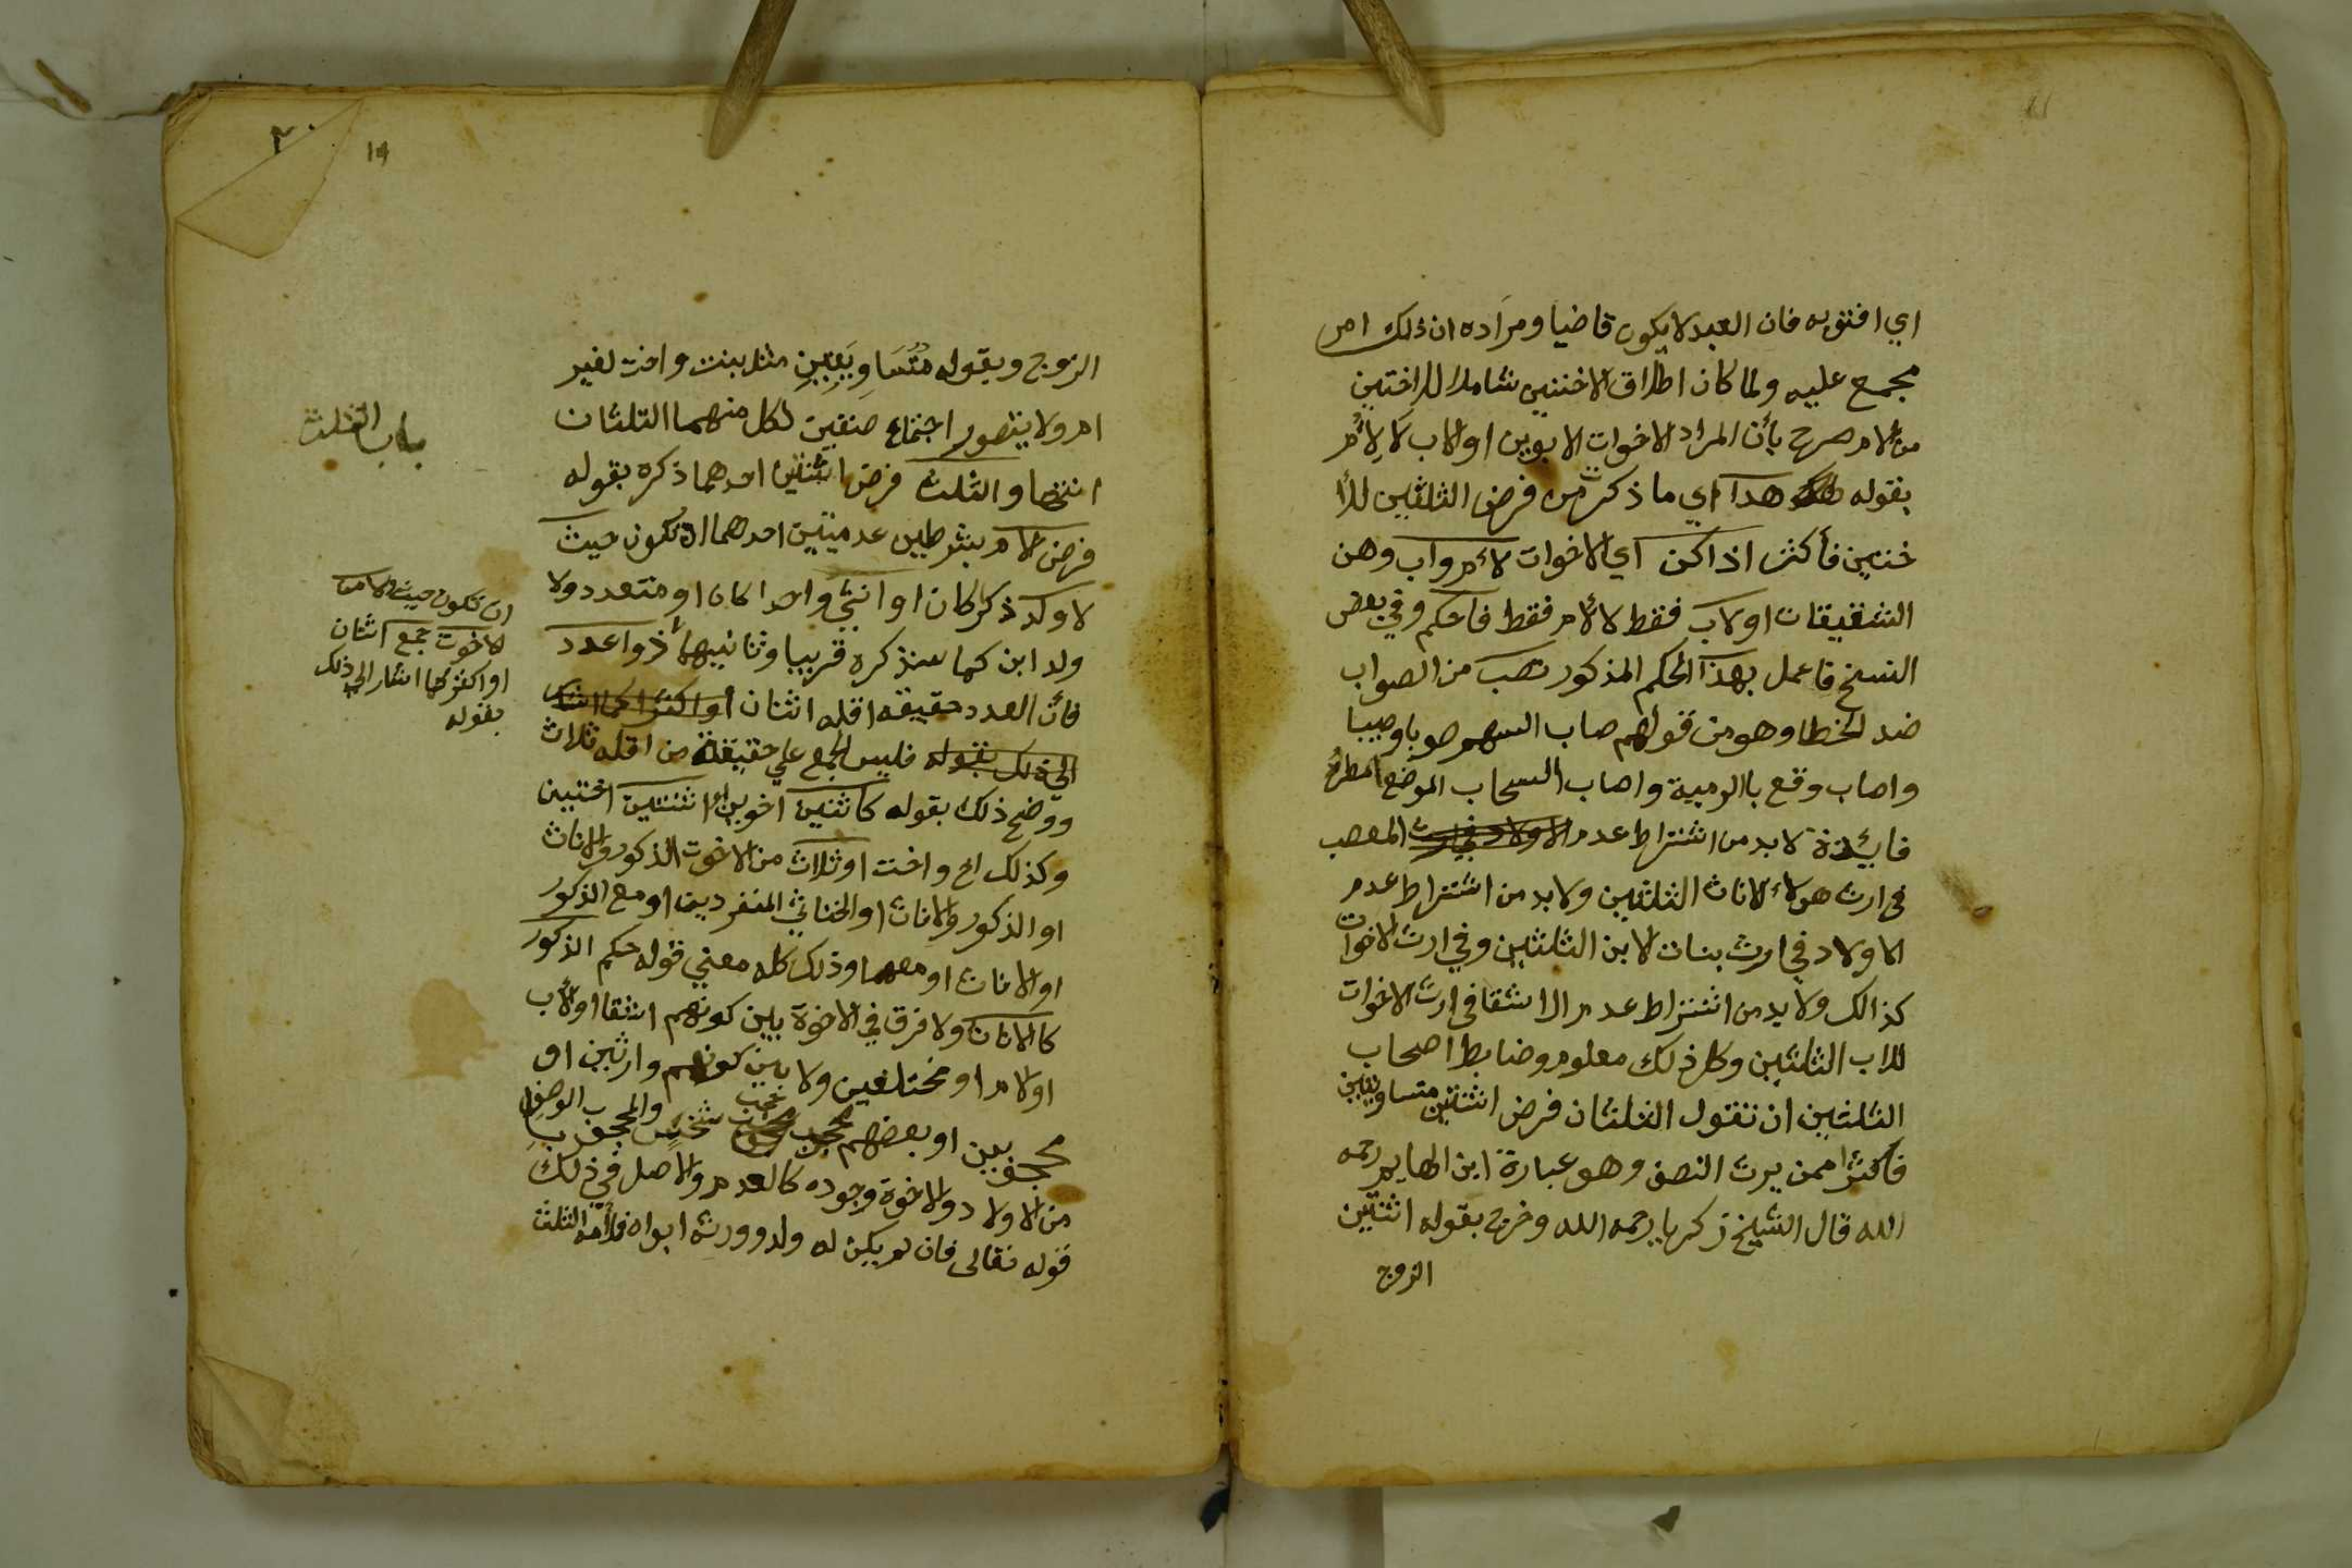 اي افتوبه فان العبد لا يكون قاضيا ومراده ان ذلك امر
مجمع عليه ولما كان اطلاق الاختين شاملا للاختين
من الام صرح بأن المراد الاخوات الابوين او الاب لا لأم
بقوله هذا اي ما ذكرت من فرض الثلثين للأ
ختين فأكثر اذا كن اي الاخوات لأم واب وهن
الشقيقات او لاب فقط لا لأم فقط فاحكم وفي بعض
النسخ فاعمل بهذا الحكم المذكور تصب من الصواب
ضد الخطا وهو من قولهم صاب السهم صوبا وصيبا
واصاب وقع بالرمية واصاب السحاب الموضع امطره
فايدة لا بد من اشتراط عدم الاولاد في ارث المعصب
في ارث هولاء الاناث الثلثين ولا بد من اشتراط عدم
الاولاد في ارث بنات الابن الثلثين وفي ارث الاخوات
كذالك ولا بد من اشتراط عدم الاشقا في ارث الاخوات
للاب الثلثين وكل ذلك معلوم وضابط اصحاب
الثلثين ان تقول الثلثان فرض اثنتين متساويتين
فاكثر ممن يرث النصف وهو عبارة ابن الهايم رحمه
الله قال الشيخ زكريا رحمه الله وخرج بقوله اثنتين
الزوج
٢٠
١٩
الزوج وبقوله متساويتين مثل بنت واخت لغير
ام ولا يتصور اجتماع صنفين لكل منهما الثلثان
انتها والثلث فرض اثنتين احدهما ذكره بقوله
فرض الام بشرطين عدميين احدهما ان تكون حيث
لا ولد ذكرا كان او انثي واحدا كان او متعدد ولا
ولد ابن كما سنذكره قريبا وثانيهما ذوا عدد
فأن العدد حقيقه اقله اثنان او اكثر كما اشار
الي ذلك بقوله فليس الجمع علي حقيقة من اقله ثلاث
ووضح ذلك بقوله كاثنين اخوين او اثنتين اختين
وكذلك اخ واخت او ثلاث من الاخوت الذكور والاناث
او الذكور والاناث او الخناثي المنفردين او مع الذكور
او الاناث او معهما وذلك كله معني قوله حكم الذكور
كالاناث ولا فرق في الاخوة بين كونهم اشقا او لأب
او لام او مختلفين ولا بين كونهم وارثين او
محجوبين او بعضهم محجوب حجب شخص والمحجوب بالوصف
من الاولاد والاخوة وجوده كالعدم والاصل في ذلك
قوله تعالى فان لم يكن له ولد وورثه ابواه فلأمه الثلث
باب الثلث
ان تكون حيث لا من
الاخوت جمع اثنان
او اكثر كما اشار الي ذلك
بقوله